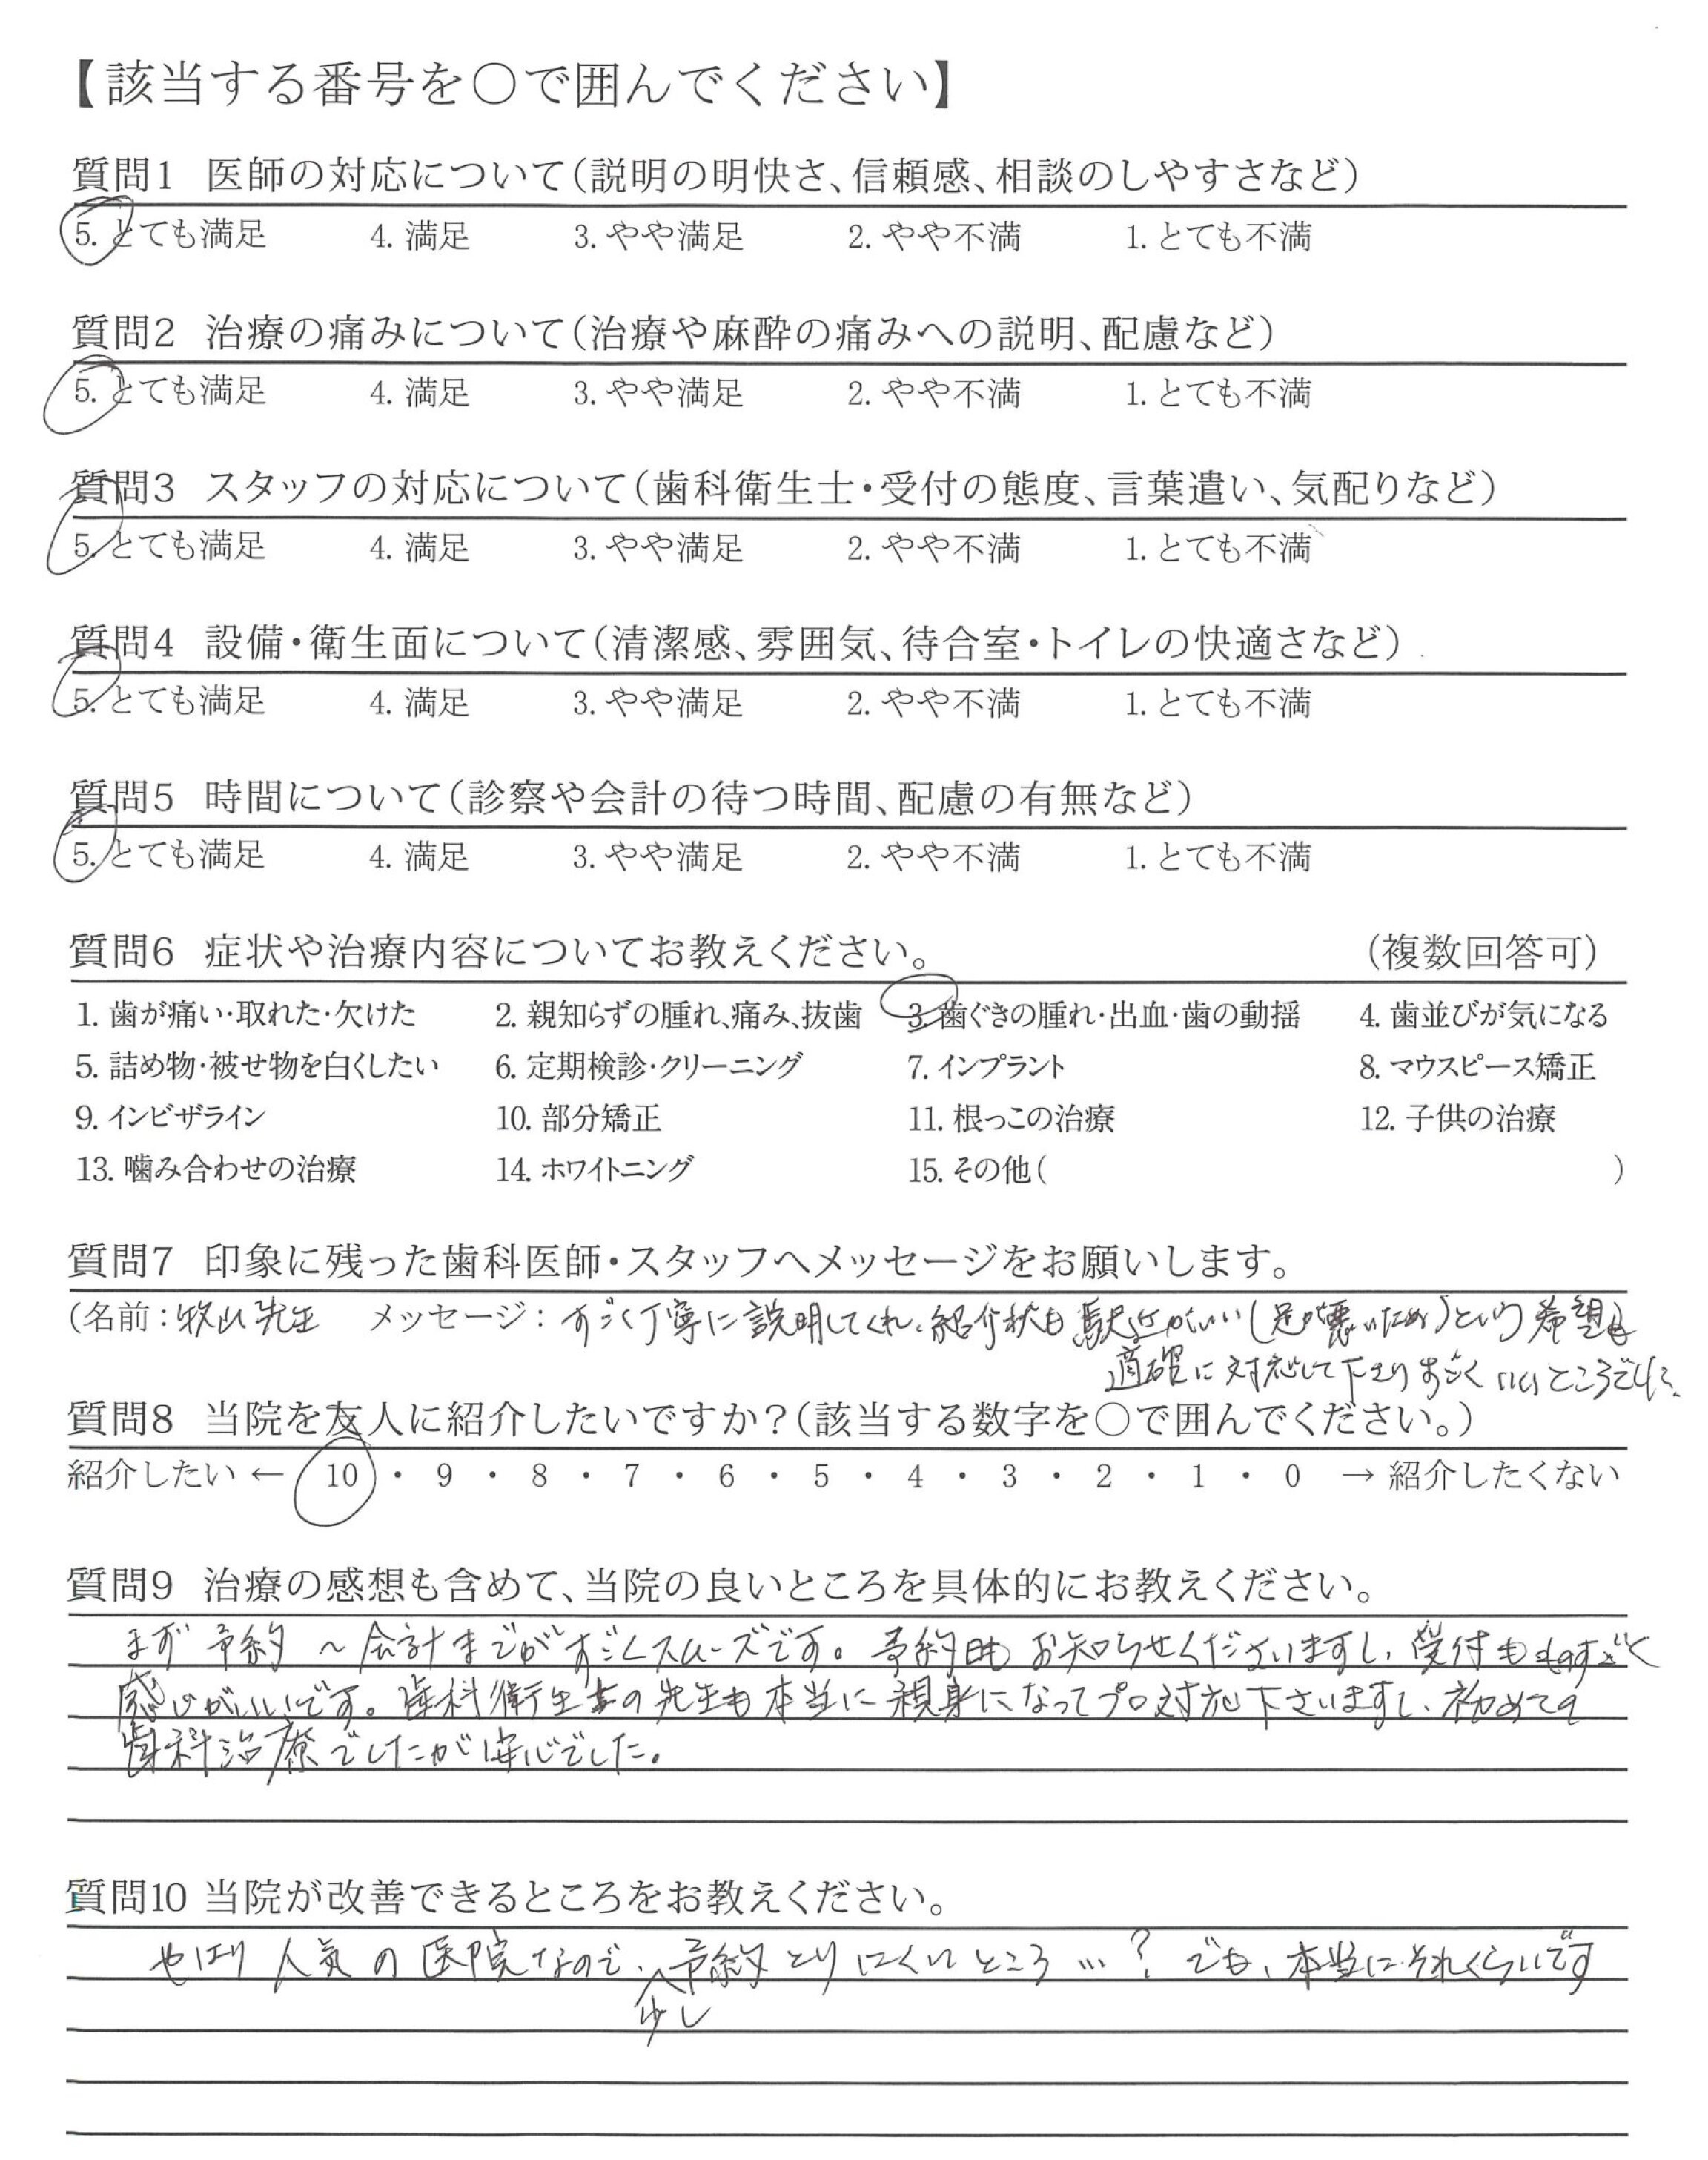 【該当する番号を〇で囲んでください】
質問1 医師の対応について(説明の明快さ、信頼感、相談のしやすさなど)
5. とても満足 4. 満足 3. やや満足 2. やや不満 1. とても不満
質問2 治療の痛みについて(治療や麻酔の痛みへの説明、配慮など)
5. とても満足 4. 満足 3. やや満足 2. やや不満 1. とても不満
質問3 スタッフの対応について(歯科衛生士・受付の態度、言葉遣い、気配りなど)
5. とても満足 4. 満足 3. やや満足 2. やや不満 1. とても不満
質問4 設備・衛生面について(清潔感、雰囲気、待合室・トイレの快適さなど)
5. とても満足 4. 満足 3. やや満足 2. やや不満 1. とても不満
質問5 時間について(診察や会計の待つ時間、配慮の有無など)
5. とても満足 4. 満足 3. やや満足 2. やや不満 1. とても不満
質問6 症状や治療内容についてお教えください。 (複数回答可)
1. 歯が痛い・取れた・欠けた 2. 親知らずの腫れ、痛み、抜歯 3. 歯ぐきの腫れ・出血・歯の動揺 4. 歯並びが気になる
5. 詰め物・被せ物を白くしたい 6. 定期検診・クリーニング 7. インプラント 8. マウスピース矯正
9. インビザライン 10. 部分矯正 11. 根っこの治療 12. 子供の治療
13. 噛み合わせの治療 14. ホワイトニング 15. その他( )
質問7 印象に残った歯科医師・スタッフへメッセージをお願いします。
(名前:牧山先生 メッセージ:すごく丁寧に説明してくれ、紹介状も駅近がいい(足が悪いため)という希望も
適確に対応して下さりすごくいいところでした。
質問8 当院を友人に紹介したいですか?(該当する数字を〇で囲んでください。)
紹介したい ← 10 ・ 9 ・ 8 ・ 7 ・ 6 ・ 5 ・ 4 ・ 3 ・ 2 ・ 1 ・ 0 → 紹介したくない
質問9 治療の感想も含めて、当院の良いところを具体的にお教えください。
まず予約〜会計までがすごくスムーズです。予約日もお知らせくださいますし、受付もものすごく
感じがいいです。歯科衛生士の先生も本当に親身になってプロ対応下さいますし、初めての
歯科治療でしたが安心でした。
質問10 当院が改善できるところをお教えください。
やはり人気の医院なので、少し予約とりにくいところ…?でも、本当にそれくらいです